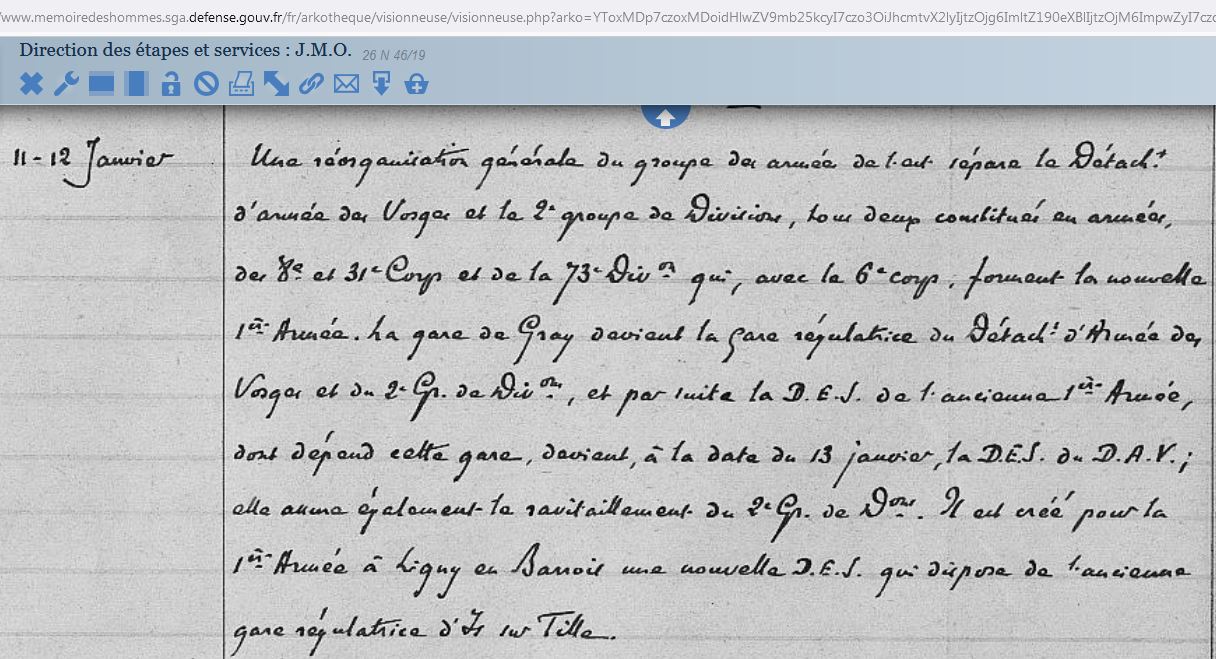 www.memoiredeshommes.sga.defense.gouv.fr/fr/arkotheque/visionneuse/visionneuse.php?arko=
Direction des étapes et services : J.M.O. 26 N 46/19
11-12 Janvier
Une réorganisation générale du groupe des armées de l'est sépare le Détacht
d'armée des Vosges et le 2e groupe de Divisions, tous deux constitués en armées,
des 8e et 31e Corps et de la 73e Divon qui, avec le 6e corps, forment la nouvelle
1ère Armée. La gare de Gray devient la gare régulatrice du Détacht d'Armée des
Vosges et du 2e Gr. de Divons, et par suite la D.E.S. de l'ancienne 1ère Armée,
dont dépend cette gare, devient, à la date du 13 janvier, la D.E.S. du D.A.V.;
elle assure également le ravitaillement du 2e Gr. de Dons. Il est créé pour la
1ère Armée à Ligny en Barrois une nouvelle D.E.S. qui dispose de l'ancienne
gare régulatrice d'Is sur Tille.